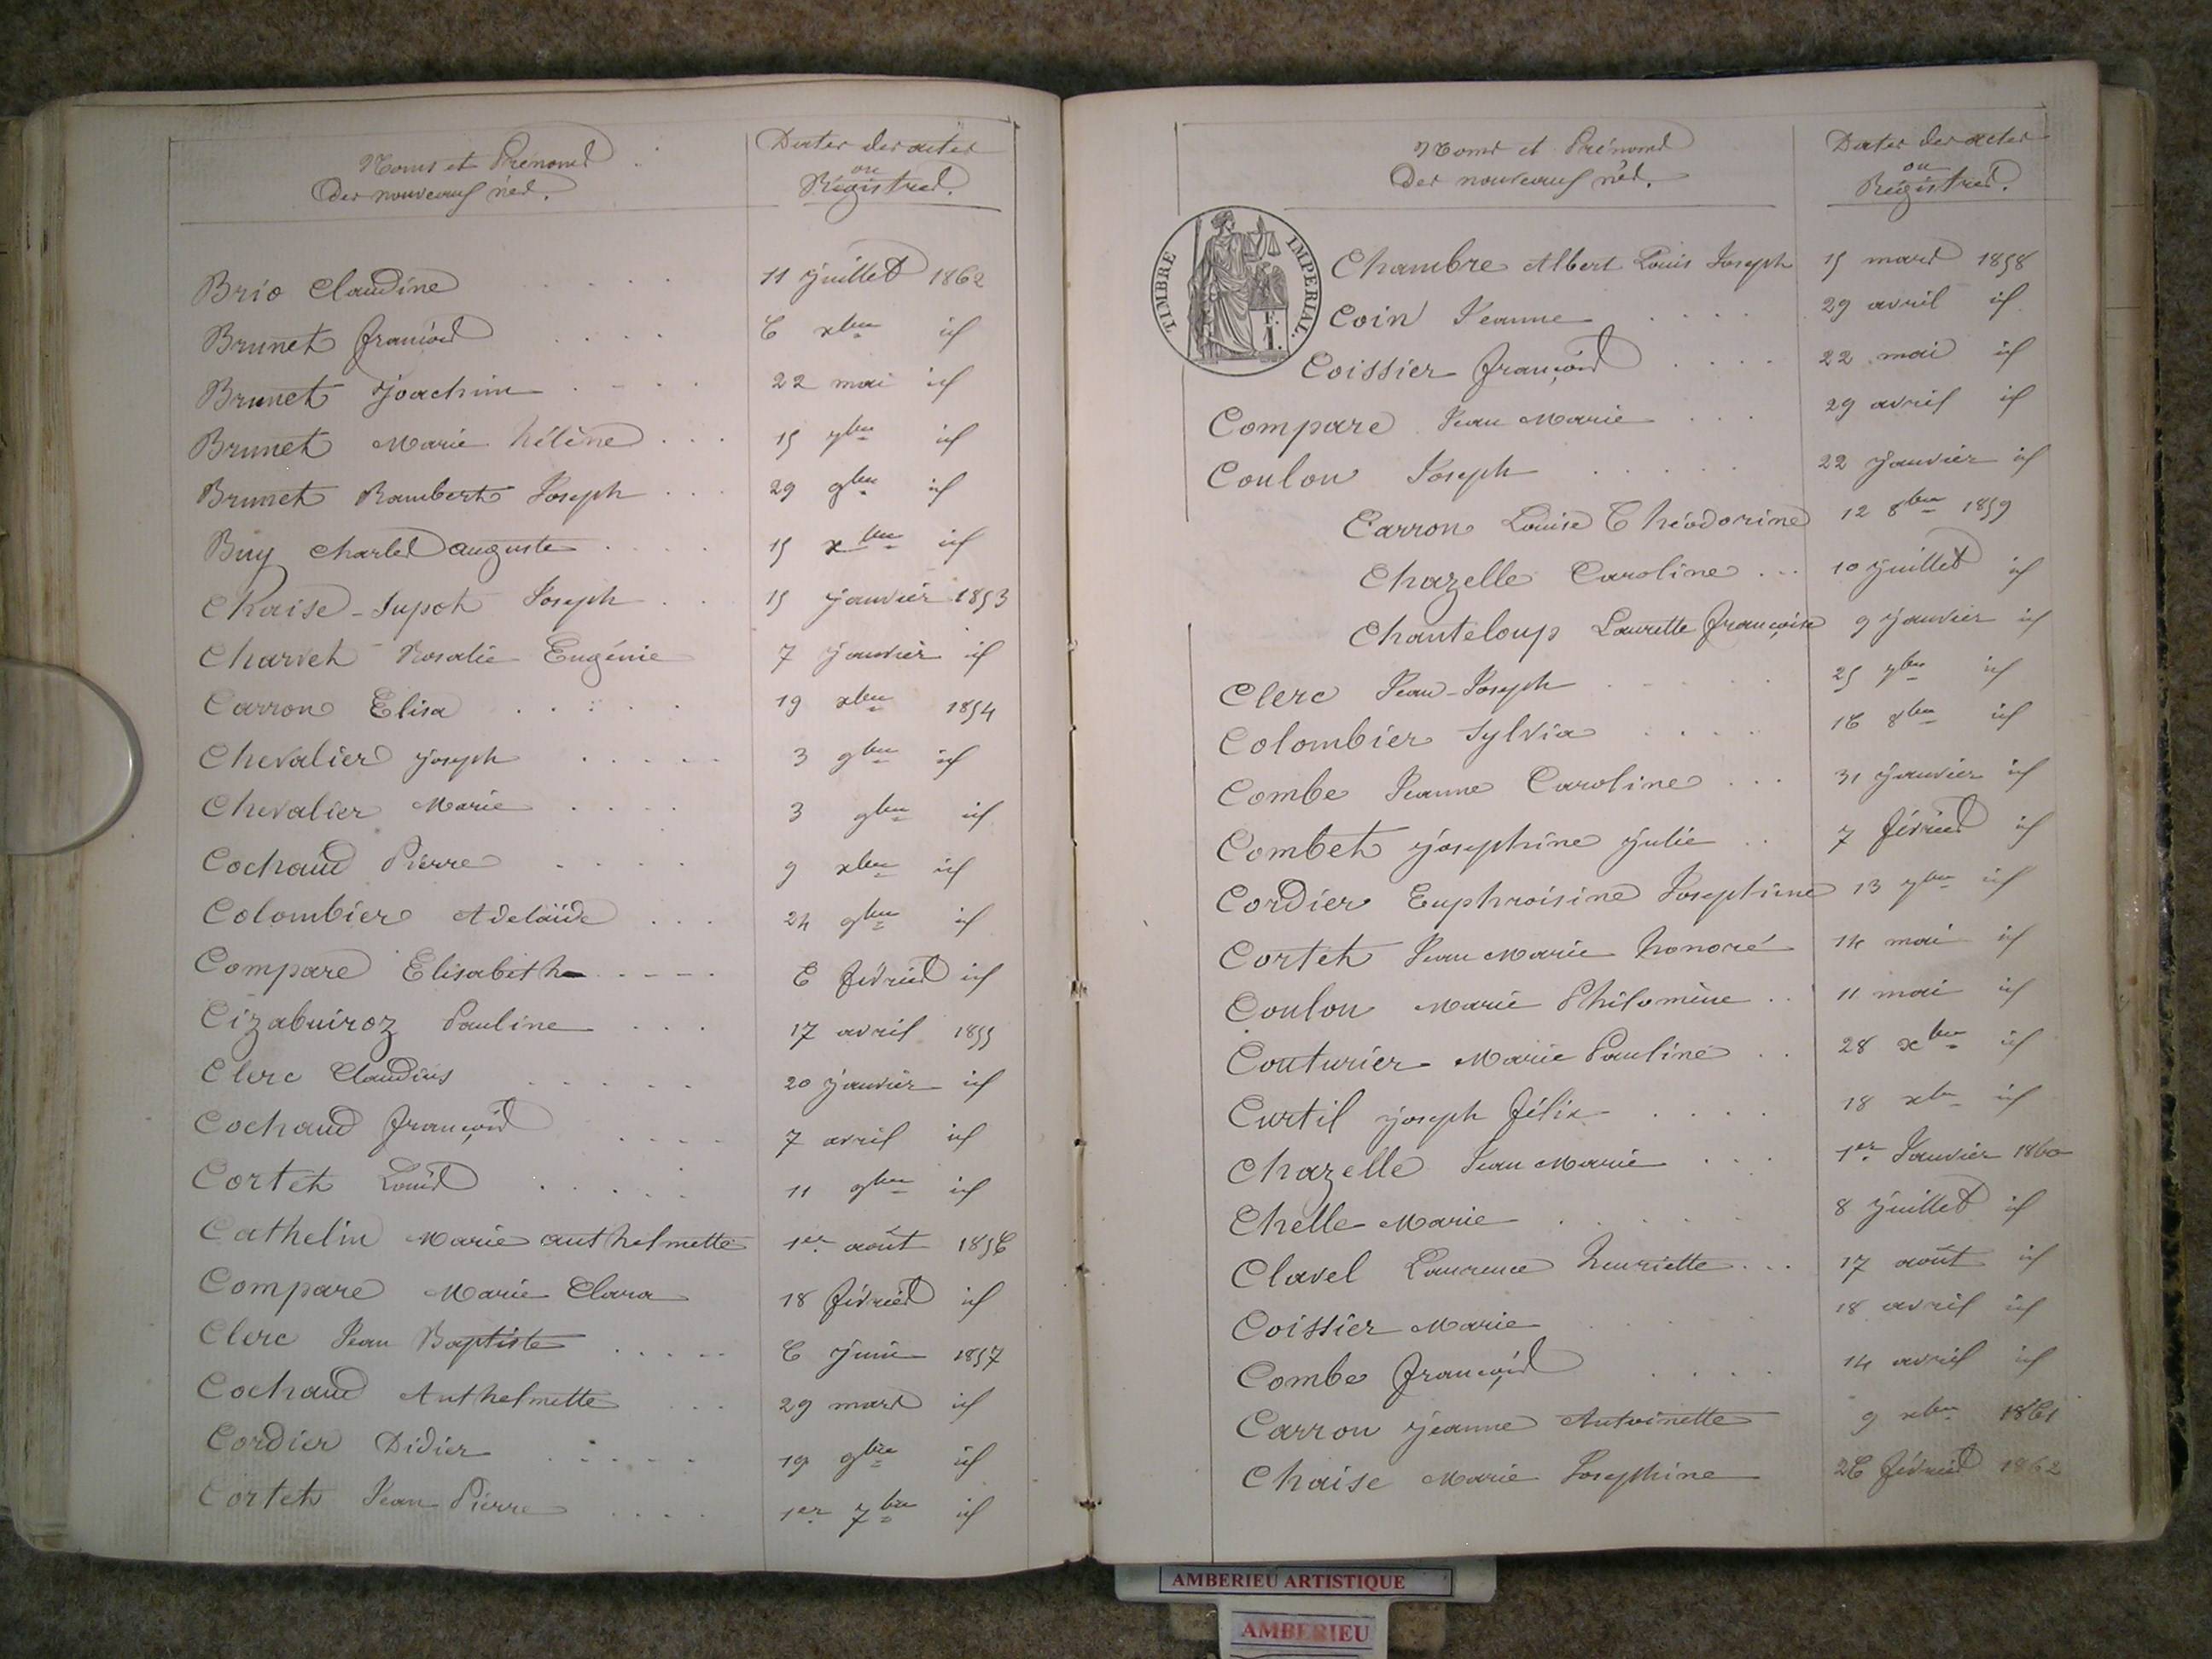 Noms et Prénoms
Des nouveaux nés.
Dates des actes
ou
Régistres.
Brio Claudine . . . . . 11 juillet 1862
Brunet François . . . . 6 xbre id
Brunet Joachim . . . . 22 mai id
Brunet Marie hélène . . . 15 7bre id
Brunet Rambert Joseph . . . 29 9bre id
Buy Charles auguste . . . . 15 xbre id
Chaise-Supot Joseph . . 15 janvier 1853
Charvet Rosalie Eugénie 7 janvier id
Carron Elisa . . . . . 19 xbre 1854
Chevalier joseph . . . . . 3 9bre id
Chevalier Marie . . . . 3 9bre id
Cochaud Pierre . . . . 9 xbre id
Colombier Adelaïde . . . 24 9bre id
Compare Elisabeth . . . . 6 février id
Cizabuiroz Pauline . . . 17 avril 1855
Clerc Claudius . . . . . 20 janvier id
Cochaud François . . . . 7 avril id
Cortet Louis . . . . . 11 9bre id
Cathelin Marie anthelmette 1er août 1856
Compare Marie Clara 18 février id
Clerc Jean Baptiste . . . . . 6 juin 1857
Cochaud Anthelmette . . . 29 mars id
Cordier Didier . . . . . 19 9bre id
Cortet Jean Pierre . . . . 1er 7bre id
Noms et Prénoms
Des nouveaux nés.
Dates des actes
ou
Régistres.
TIMBRE IMPERIAL.
F.
1.
Chambre Albert Louis Joseph 15 mars 1858
Coin Jeanne . . . . 29 avril id
Coissier François . . . 22 mai id
Compare Jean Marie . . . 29 avril id
Coulon Joseph . . . . . 22 janvier id
Carron Louise Théodorine 12 8bre 1859
Chazelle Caroline . . . 10 juillet id
Chanteloup Laurette Françoise 9 janvier id
Clerc Jean-Joseph . . . . . 25 7bre id
Colombier Sylvia . . . . 16 8bre id
Combe Jeanne Caroline . . . 31 janvier id
Combet joséphine julie . . 7 février id
Cordier Euphroisine Josephine 13 7bre id
Cortet Jean Marie honoré 14 mai id
Coulon Marie Philomène . . 11 mai id
Couturier Marie Pauline . . 28 xbre id
Curtil joseph félix . . . . 18 xbre id
Chazelle Jean Marie . . . 1er Janvier 1860
Chelle Marie . . . . . 8 juillet id
Clavel Laurence henriette . . . 17 août id
Coissier Marie . . . . . 18 avril id
Combe François . . . . 14 avril id
Carron jeanne Antoinette 9 xbre 1861
Chaise Marie Josephine 26 février 1862
AMBERIEU ARTISTIQUE
AMBERIEU